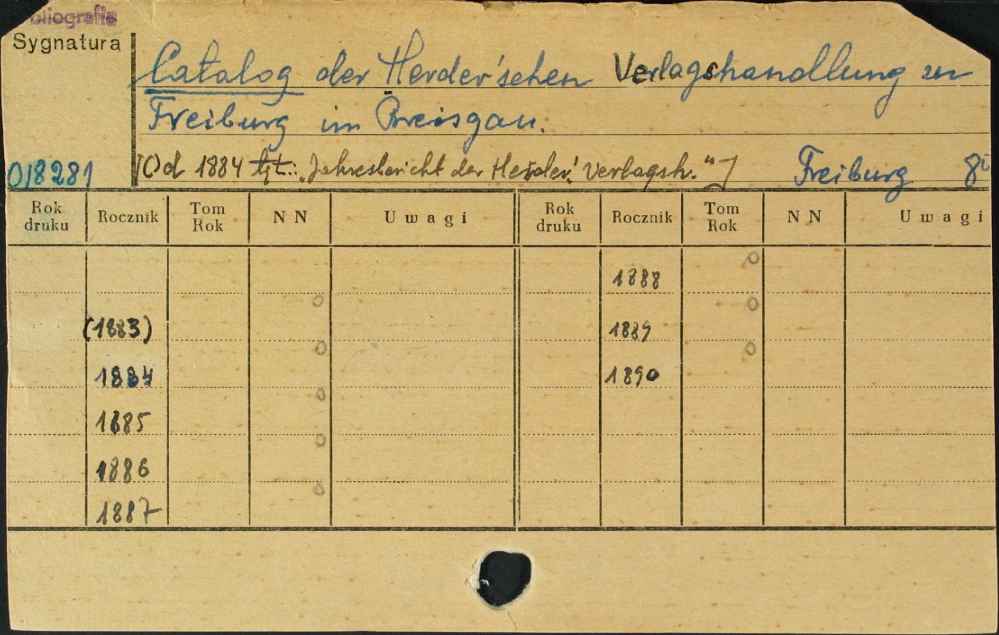 bliografie
Sygnatura
Catalog der Herder'schen Verlagshandlung zu
Freiburg im Breisgau.
018281 [Od 1884 tyt.: "Jahresbericht der Herder. Verlagsh."] Freiburg 8°
Rok druku Rocznik Tom Rok NN Uwagi Rok druku Rocznik Tom Rok NN Uwagi
1888
(1883) 1889
1884 1890
1885
1886
1887